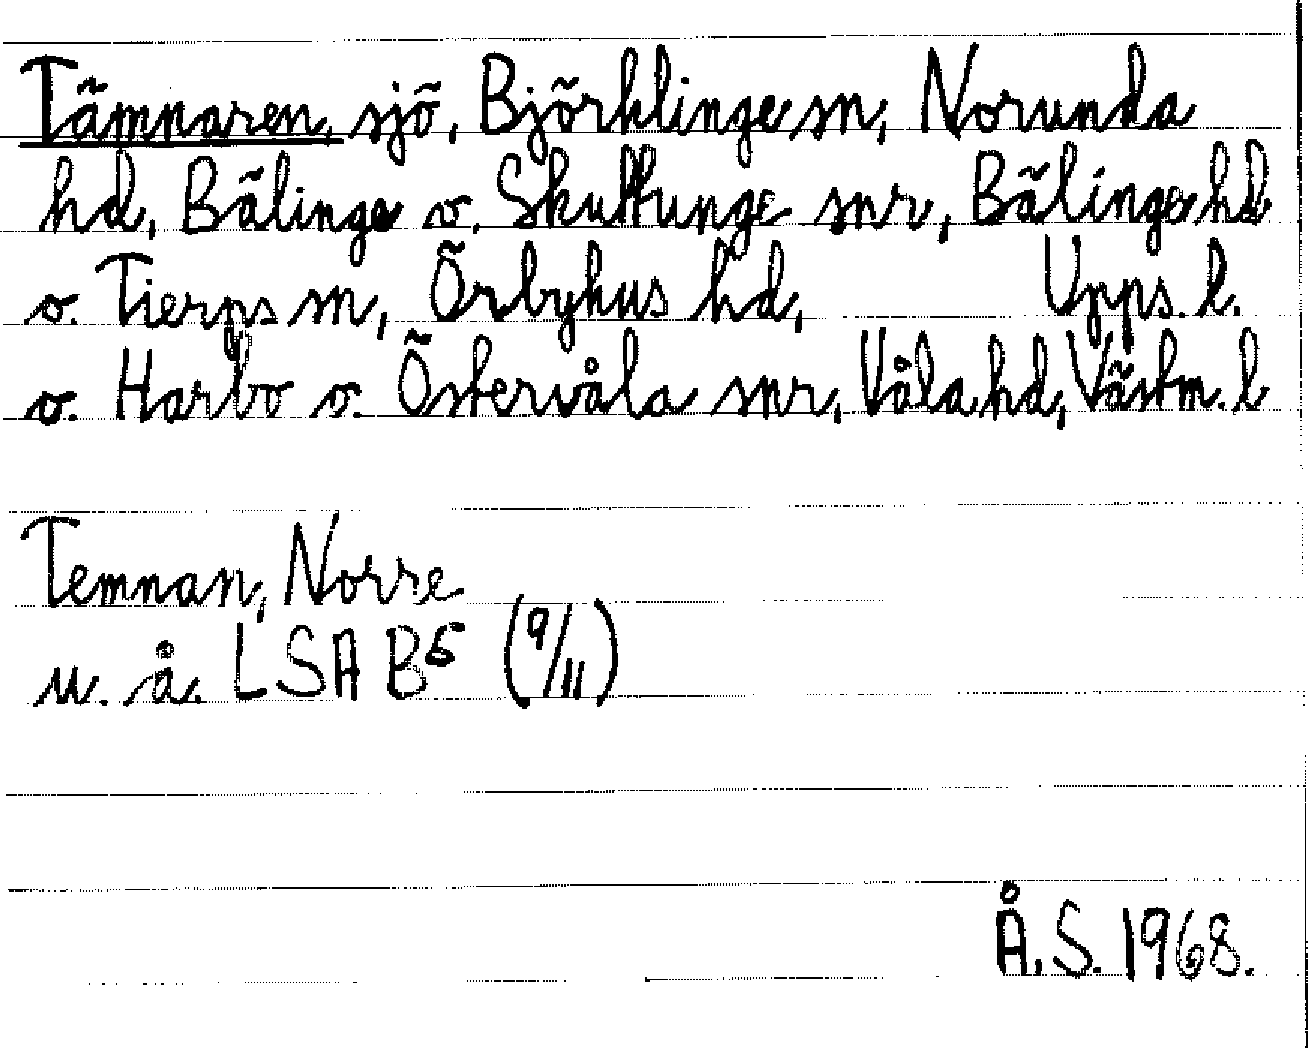 Tämnaren, sjö, Björklinge sn, Norunda
hd, Bälinge o. Skuttunge snr, Bälinge hd
o. Tierps sn, Örbyhus hd, Upps. l.
o. Harbo o. Östervåla snr, Våla hd, Västm. l
Temnan, Norre
u. å. LSA B5 (9/11)
Å.S. 1968.